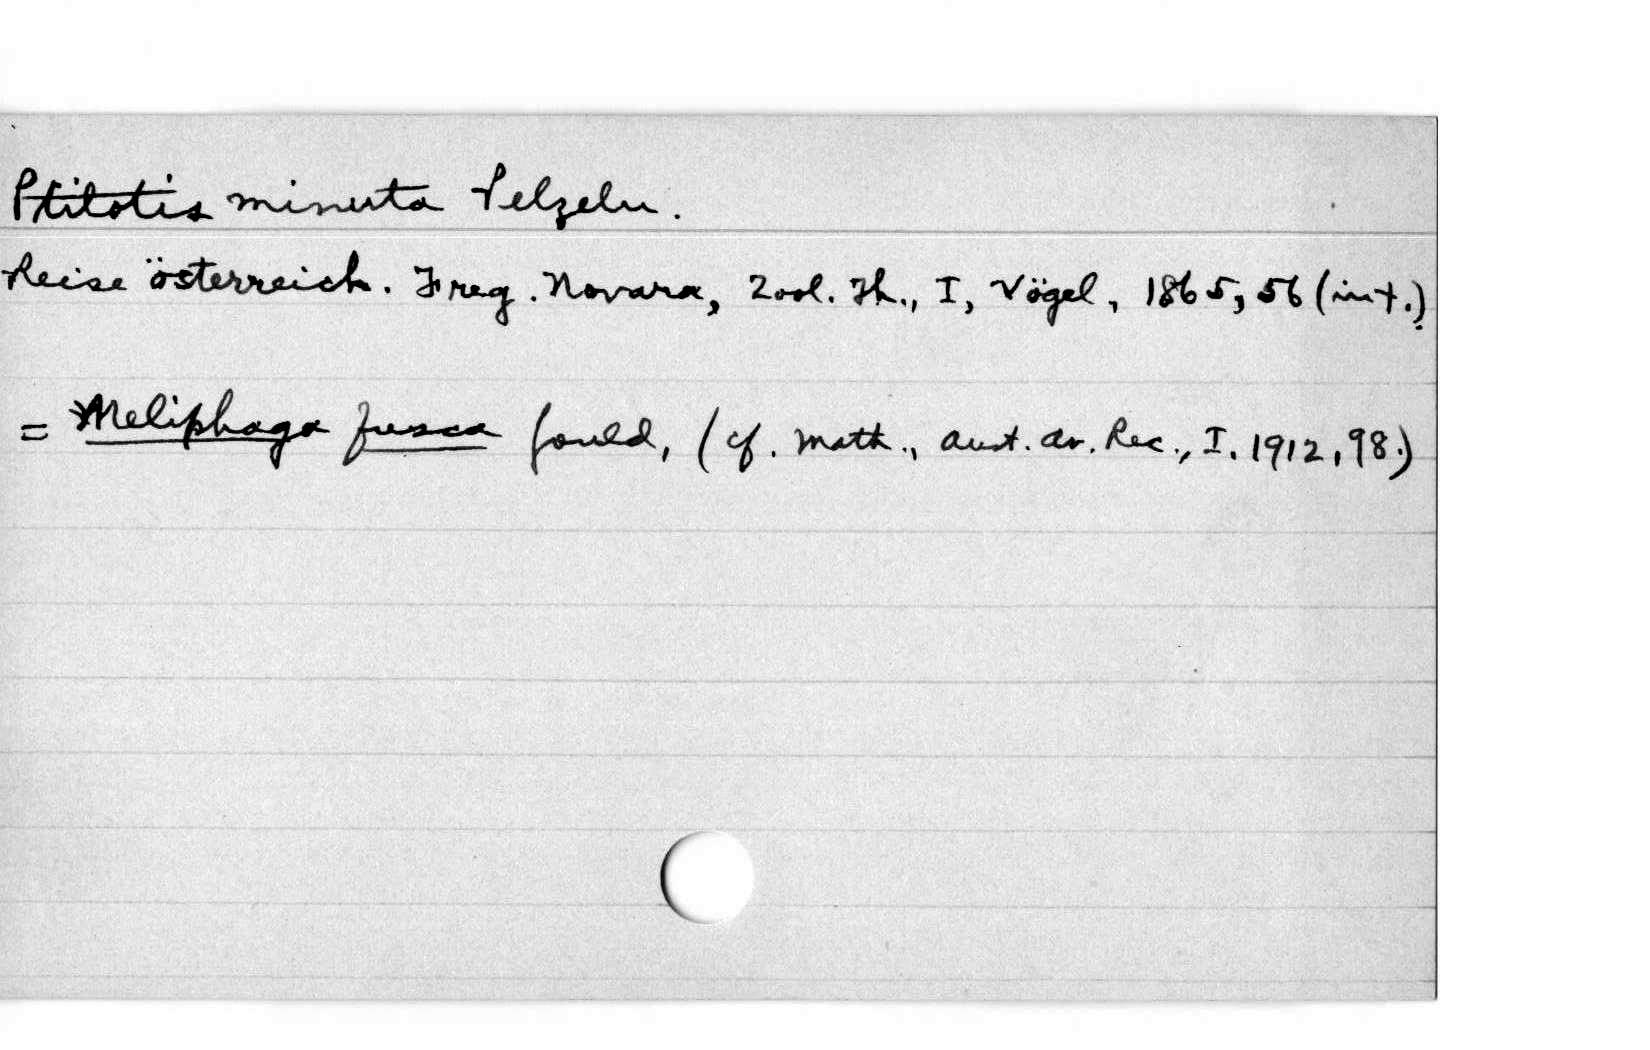 Ptilotis minuta Pelzeln.
Reise österreich. Freg. Novara, Zool. Th., I, Vögel, 1865, 56 (int.)
= Meliphaga fusca Gould, (cf. Math., Aust. Av. Rec., I. 1912, 98.)